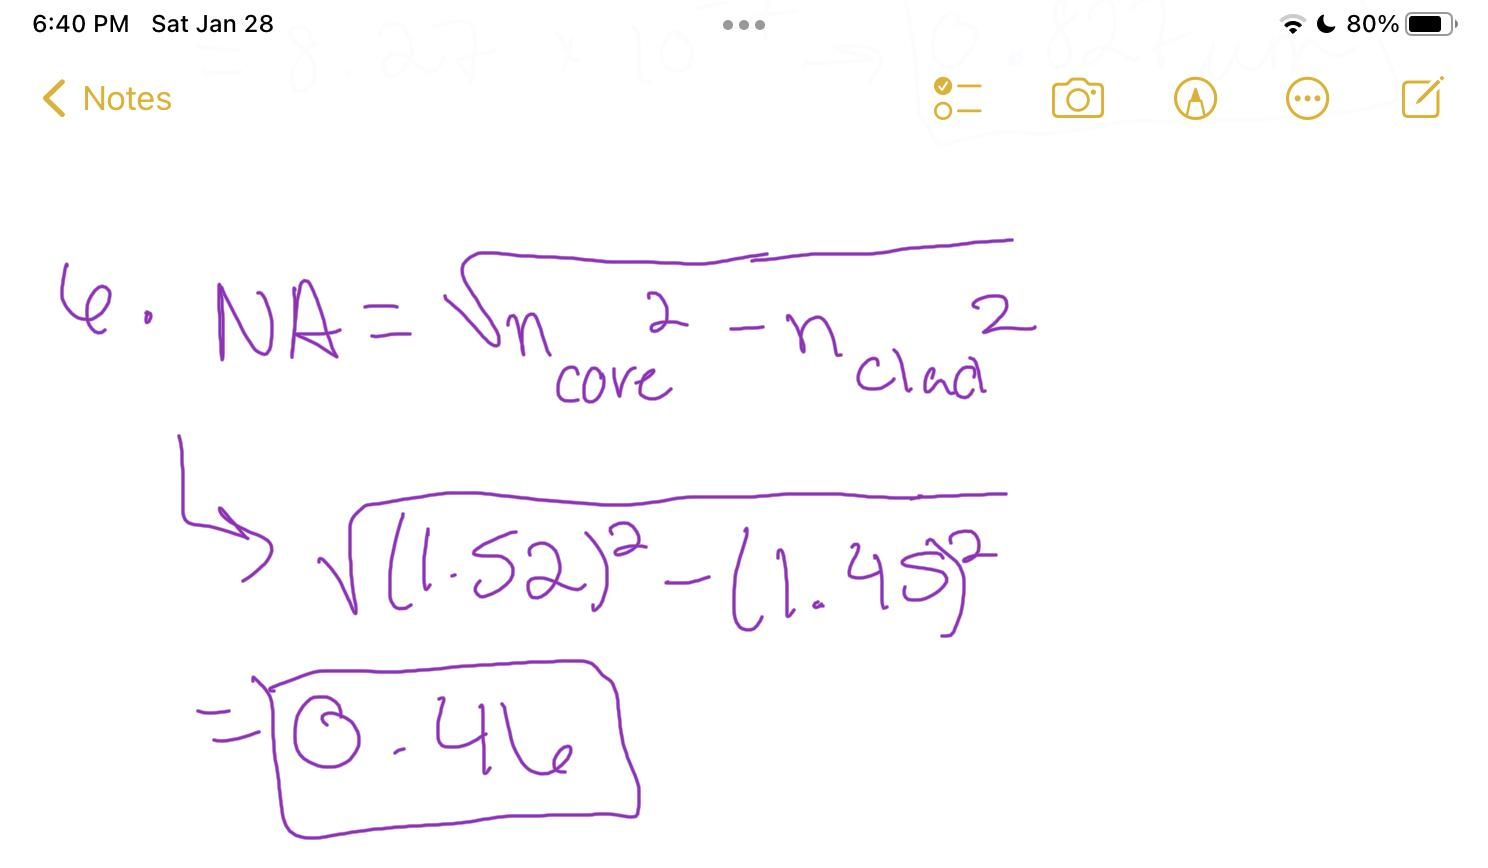 6:40 PM Sat Jan 28
80%
= 8.27 × 10 → 0.827μm
Notes
6. NA = √n core ² - n clad ²
↳ √(1.52)² - (1.45)²
= 0.46